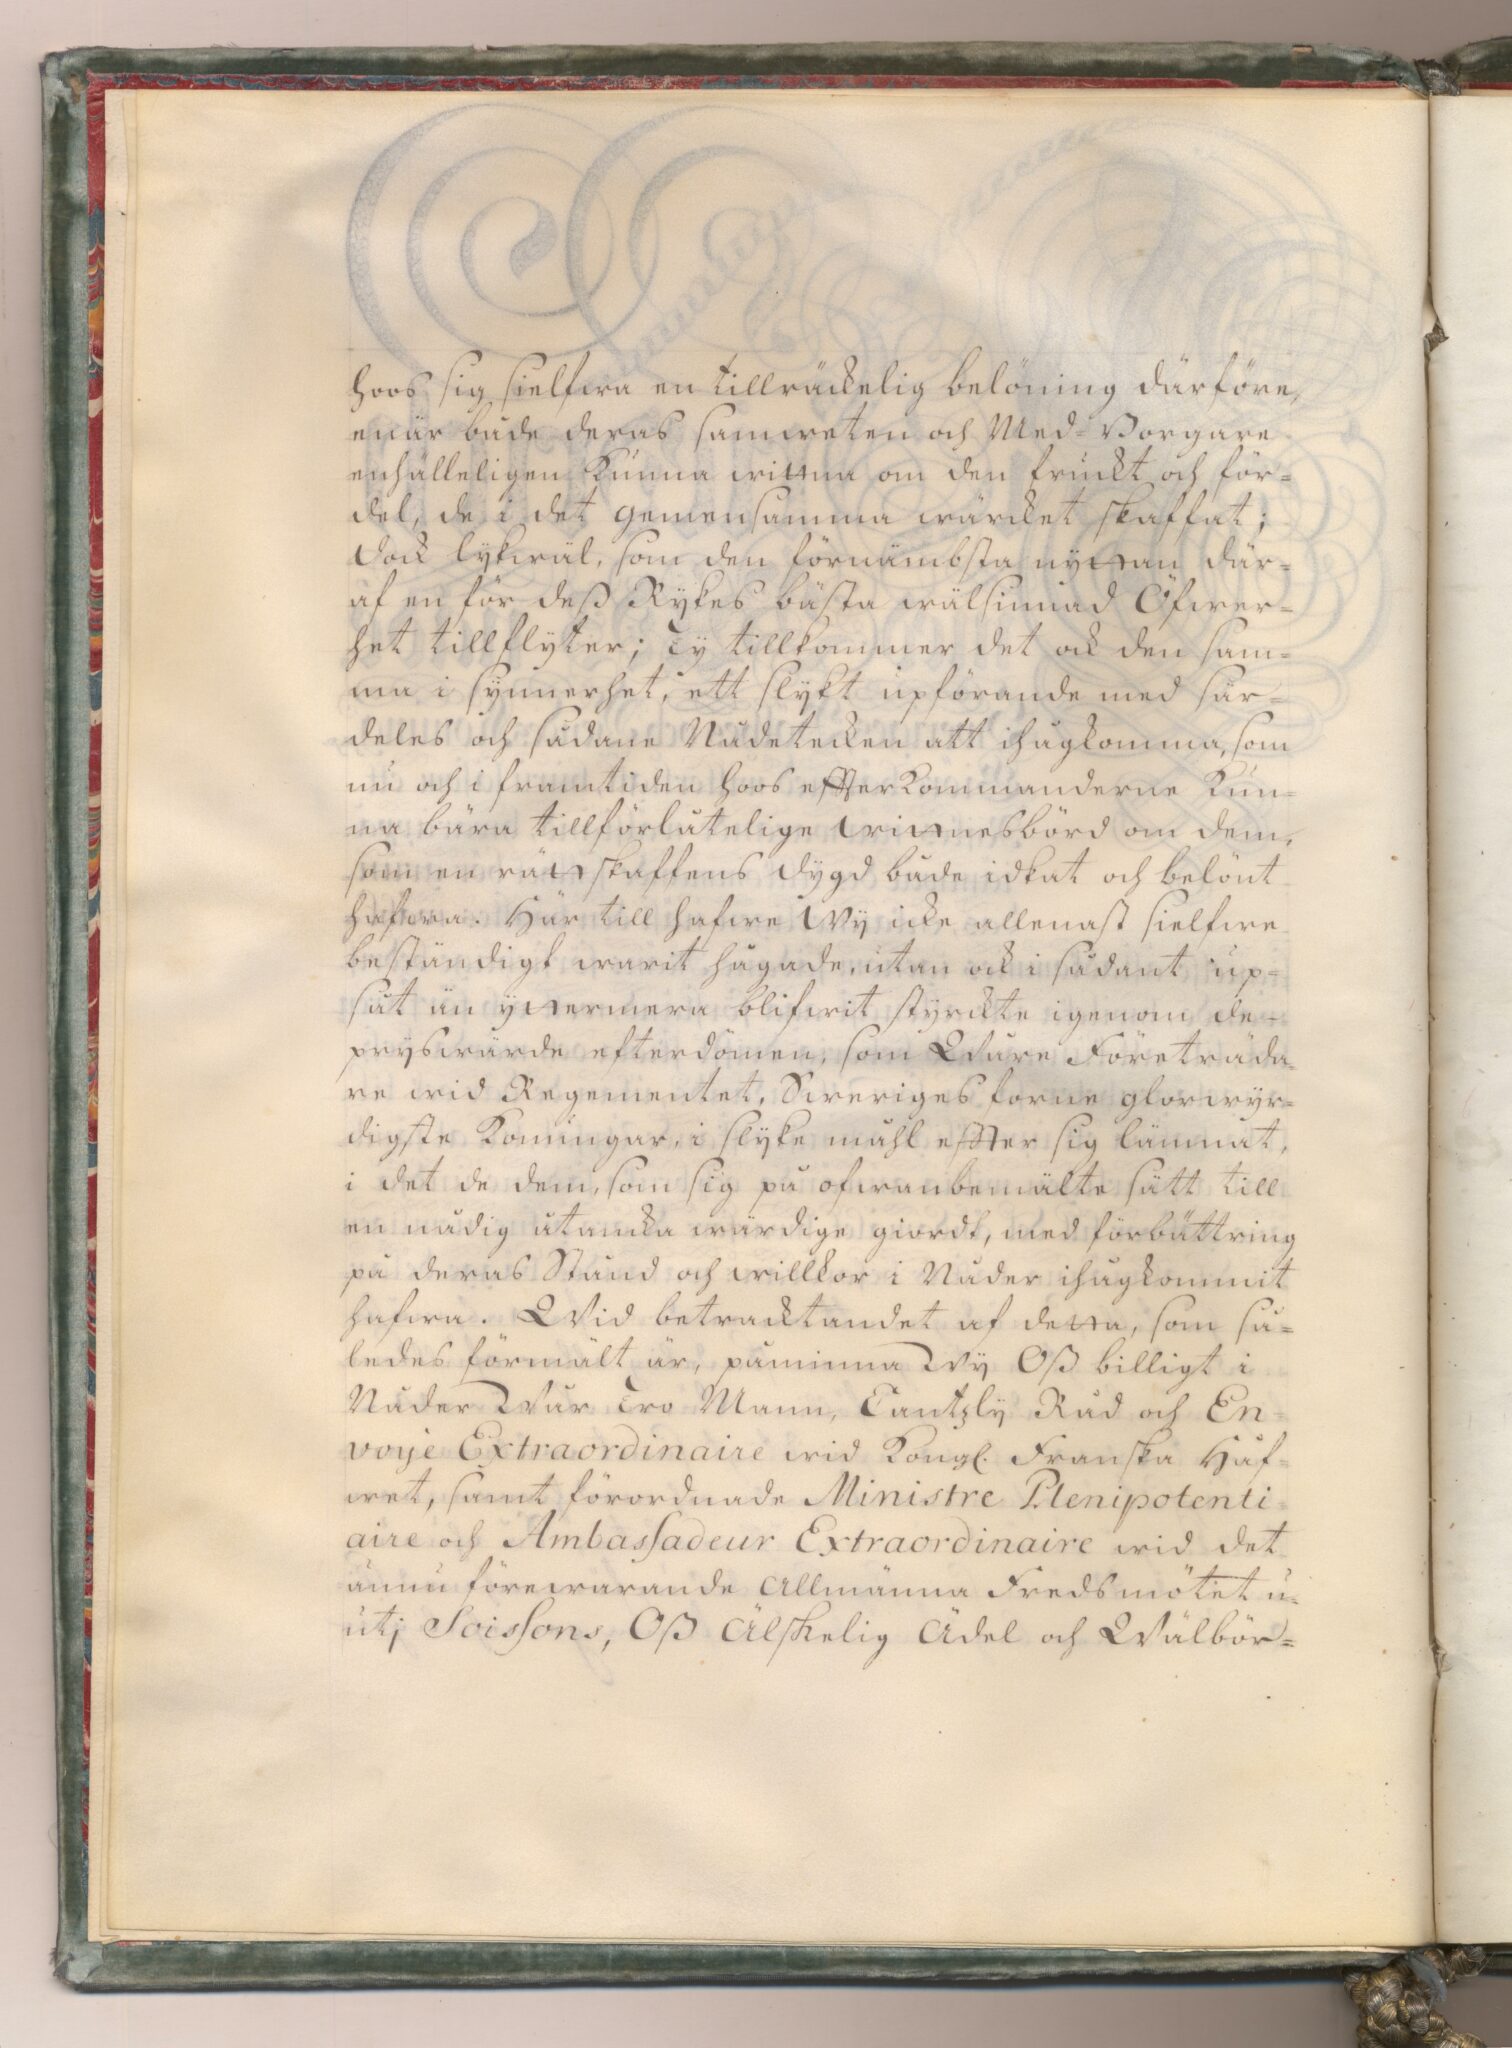 hoos sig sielfwa en tillräckelig belöning därföre,
enär både deras samweten och Med-Borgare
enhälleligen kunna wittna om den fruckt och för-
del, de i det gemensamma wärcket skaffat;
dock lykwäl, som den förnämbsta nyttan där-
af en för deß Rykes bästa wälsinnad Öfwer-
het tillflyter; Ty tillkommer det ock den sam-
ma i synnerhet, ett slykt upförande med sär-
deles och sådane Nådetecken att ihugkomma, som
nu och i framtiden hoos effterkommanderne kun-
na bära tillförlåtelige wittnesbörd om dem,
som en rättskaffens dygd både idkat och belönt
hafwa. Här till hafwe Wy icke allenast sielfwe
beständigt warit hugade, utan ock i sådant up-
såt än yttermera blifwit styrckte igenom de
pryswärde efterdömen, som Wåre Företräda-
re wid Regementet, Sweriges forne glorwyr-
digste Konungar, i slyke måhl effter sig lämnat,
i det de dem, som sig på ofwanbemälte sätt till
en nådig åtancka wärdige giordt, med förbättring
på deras Stånd och willkor i Nåder ihugkommit
hafwa. Wid betracktandet af detta, som så-
ledes förmält är, påminna Wy Oß billigt i
Nåder Wår Tro Mann, Cantzly Råd och En-
voije Extraordinaire wid Kongl. Franska Håf-
wet, samt förordnade Ministre Plenipotenti
aire och Ambassadeur Extraordinaire wid det
ännu förewarande Allmänna Fredsmötet u-
uti Soissons, Oß Älskelig Ädel och Wälbör-